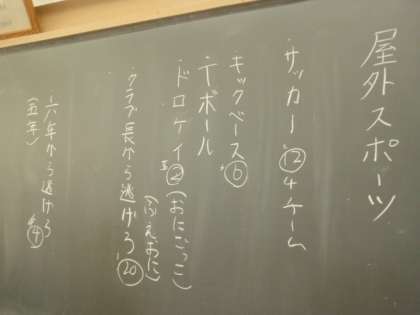 屋外スポーツ
・サッカー⑫4チーム
・キックベース⑥
・テボール
・ドロケイ②(おにごっこ)
(ふえおに)
・クラブ長から逃げろ⑳
・六年から逃げろ④
(五年)